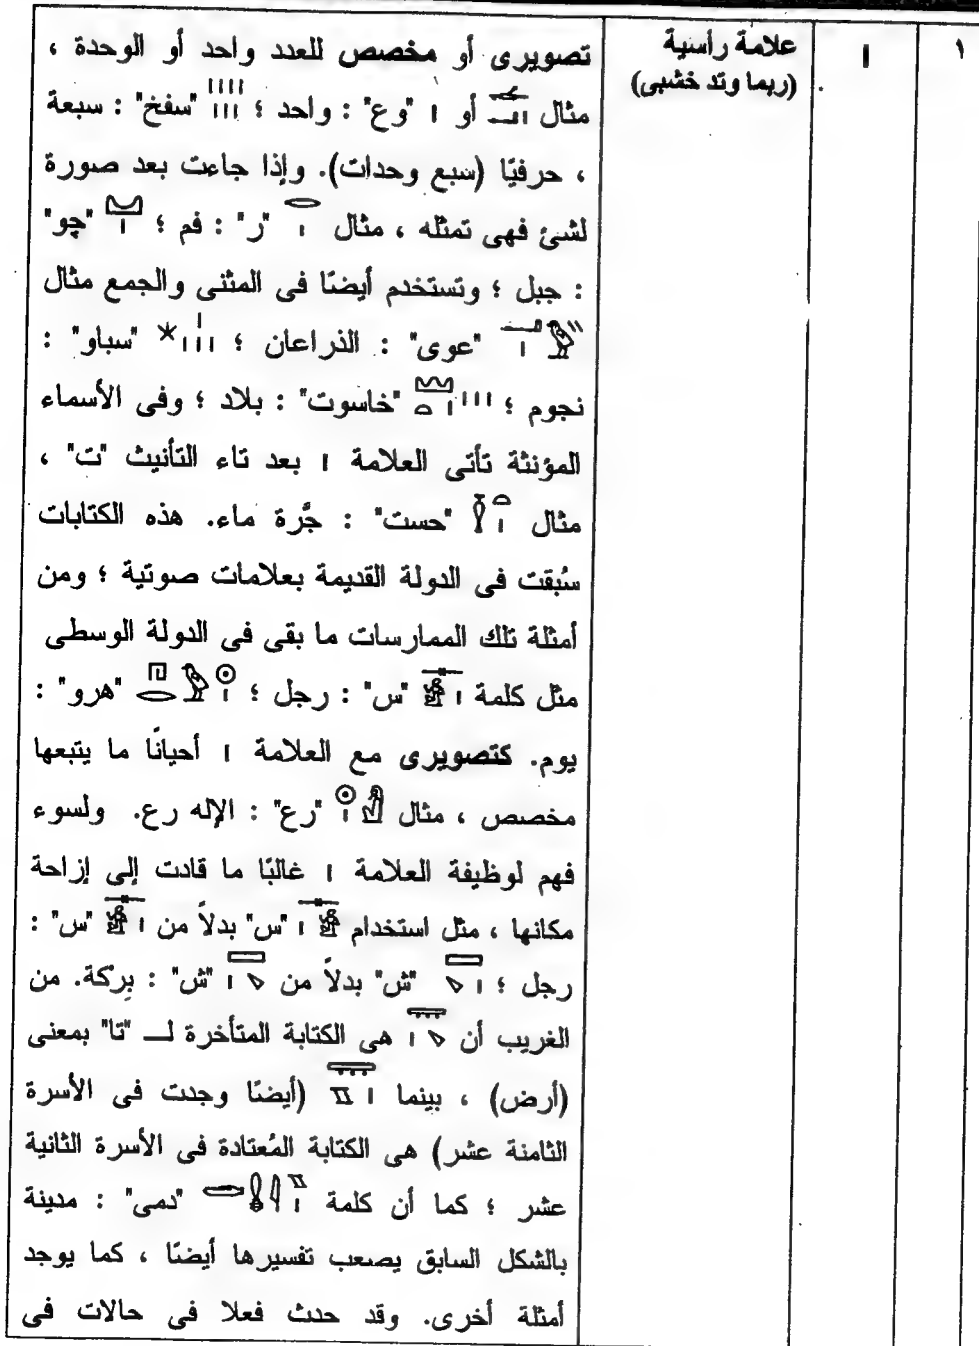 ١
𓏤
علامة رأسية
(ربما وتد خشبى)
تصويرى أو مخصص للعدد واحد أو الوحدة ،
مثال أو 𓏤 "وع" : واحد ؛ "سفخ" : سبعة
، حرفيًا (سبع وحدات). وإذا جاءت بعد صورة
لشئ فهى تمثله ، مثال 𓂋𓏤 "ر" : فم ؛ 𓈋𓏤 "چو"
: جبل ؛ وتستخدم أيضًا فى المثنى والجمع مثال
"عوى" : الذراعان ؛ "سباو" :
نجوم ؛ "خاسوت" : بلاد ؛ وفى الأسماء
المؤنثة تأتى العلامة 𓏤 بعد تاء التأنيث "ت" ،
مثال "حست" : جَّرة ماء. هذه الكتابات
سُبقت فى الدولة القديمة بعلامات صوتية ؛ ومن
أمثلة تلك الممارسات ما بقى فى الدولة الوسطى
مثل كلمة "س" : رجل ؛ "هرو" :
يوم. كتصويرى مع العلامة 𓏤 أحيانًا ما يتبعها
مخصص ، مثال "رع" : الإله رع. ولسوء
فهم لوظيفة العلامة 𓏤 غالبًا ما قادت إلى إزاحة
مكانها ، مثل استخدام "س" بدلاً من "س" :
رجل ؛ "ش" بدلاً من "ش" : بِركة. من
الغريب أن هى الكتابة المتأخرة لـ "تا" بمعنى
(أرض) ، بينما (أيضًا وجدت فى الأسرة
الثامنة عشر) هى الكتابة المُعتادة فى الأسرة الثانية
عشر ؛ كما أن كلمة "دمى" : مدينة
بالشكل السابق يصعب تفسيرها أيضًا ، كما يوجد
أمثلة أخرى. وقد حدث فعلا فى حالات فى